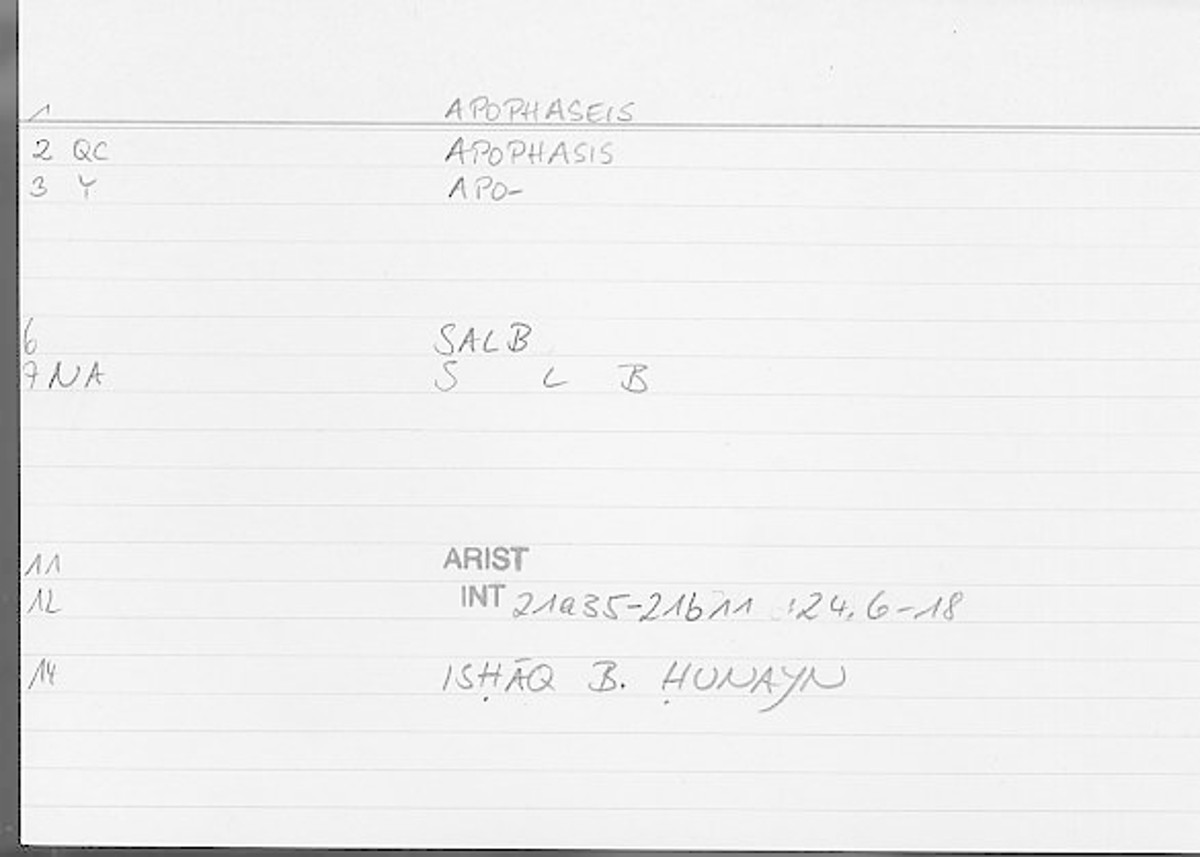 1 APOPHASEIS
2 QC APOPHASIS
3 Y APO-
6 SALB
7 NA S L B
11 ARIST
12 INT 21a35-21b11 :24,6-18
14 ISḤĀQ B. ḤUNAYN